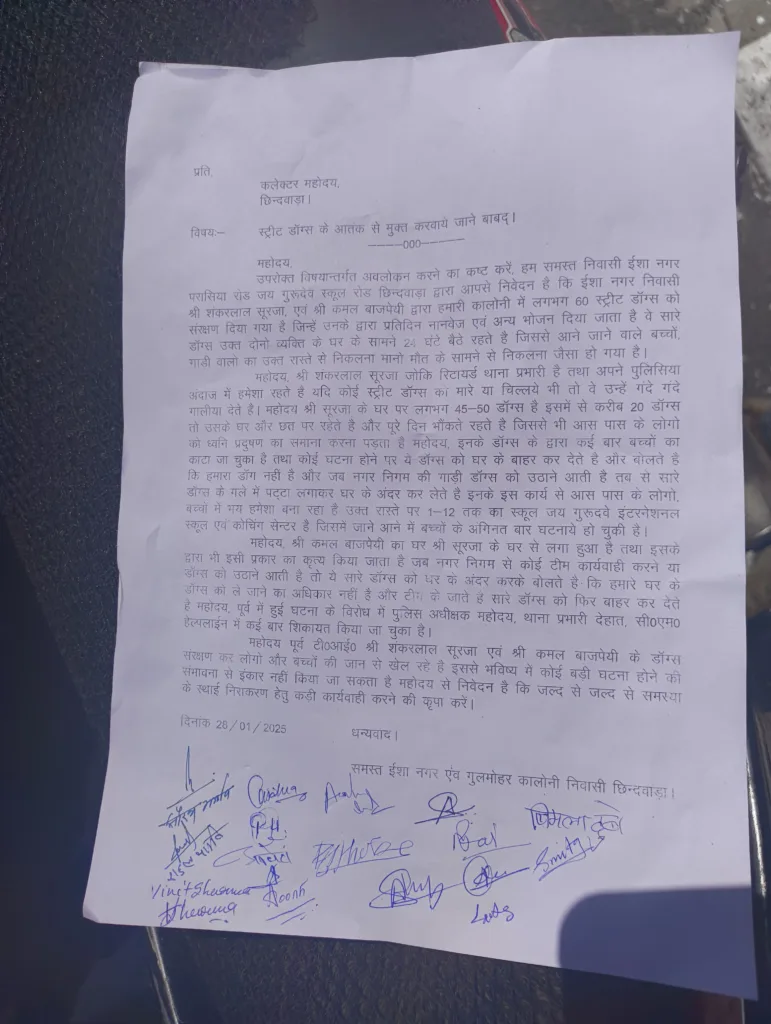 प्रति,
कलेक्टर महोदय,
छिन्दवाड़ा।
विषय:– स्ट्रीट डॉग्स के आतक से मुक्त करवाये जाने बाबद्।
———000———
महोदय,
उपरोक्त विषयान्तर्गत अवलोकन करने का कष्ट करें, हम समस्त निवासी ईशा नगर
परासिया रोड़ जय गुरूदेव स्कूल रोड़ छिन्दवाड़ा द्वारा आपसे निवेदन है कि ईशा नगर निवासी
श्री शंकरलाल सूरजा, एवं श्री कमल बाजपेयी द्वारा हमारी कालोनी में लगभग 60 स्ट्रीट डॉग्स को
संरक्षण दिया गया है जिन्हें उनके द्वारा प्रतिदिन नानवेज एवं अन्य भोजन दिया जाता है वे सारे
डॉग्स उक्त दोनो व्यक्ति के घर के सामने 24 घंटे बैठे रहते है जिससे आने जाने वाले बच्चों,
गाड़ी वालो का उक्त रास्ते से निकलना मानो मौत के सामने से निकलना जैसा हो गया है।
महोदय, श्री शंकरलाल सूरजा जोकि रिटायर्ड थाना प्रभारी है तथा अपने पुलिसिया
अदाज में हमेशा रहते है यदि कोई स्ट्रीट डॉग्स का मारे या चिल्लये भी तो वे उन्हें गंदे गंदे
गालीया देते है। महोदय श्री सूरजा के घर पर लगभग 45–50 डॉग्स है इसमें से करीब 20 डॉग्स
तो उसके घर और छत पर रहते है और पूरे दिन भौंकते रहते है जिससे भी आस पास के लोगो
को ध्वनि प्रदुषण का समाना करना पड़ता है महोदय, इनके डॉग्स के द्वारा कई बार बच्चों का
काटा जा चुका है तथा कोई घटना होने पर ये डॉग्स को घर के बाहर कर देते है और बोलते है
कि हमारा डॉग नहीं है और जब नगर निगम की गाड़ी डॉग्स को उठाने आती है तब से सारे
डॉग्स के गले में पट्टा लगाकर घर के अंदर कर लेते है इनके इस कार्य से आस पास के लोगो,
बच्चों में भय हमेशा बना रहा है उक्त रास्ते पर 1–12 तक का स्कूल जय गुरूदेव इंटरनेशनल
स्कूल एवं कोचिंग सेन्टर है जिसमे जाने आने में बच्चों के अगिनत बार घटनाये हो चुकी है।
महोदय, श्री कमल बाजपेयी का घर श्री सूरजा के घर से लगा हुआ है तथा इसके
द्वारा भी इसी प्रकार का कृत्य किया जाता है जब नगर निगम से कोई टीम कार्यवाही करने या
डॉग्स को उठाने आती है तो ये सारे डॉग्स को घर के अंदर करके बोलते है कि हमारे घर के
डॉग्स को ले जाने का अधिकार नहीं है और टीम के जाते है सारे डॉग्स को फिर बाहर कर देते
है महोदय, पूर्व में हुई घटना के विरोध में पुलिस अधीक्षक महोदय, थाना प्रभारी देहात, सी0एम0
हेल्पलाईन में कई बार शिकायत किया जा चुका है।
महोदय पूर्व टी0आई0 श्री शंकरलाल सूरजा एवं श्री कमल बाजपेयी के डॉग्स
संरक्षण कर लोगो और बच्चों की जान से खेल रहे है इससे भविष्य में कोई बड़ी घटना होने की
संभावना से इंकार नहीं किया जा सकता है महोदय से निवेदन है कि जल्द से जल्द से समस्या
के स्थाई निराकरण हेतु कड़ी कार्यवाही करने की कृपा करें।
दिनांक 26/01/2025
धन्यवाद।
समस्त ईशा नगर एंव गुलमोहर कालोनी निवासी छिन्दवाड़ा।
विमला दुबे
Vinit Sharma
Sharma